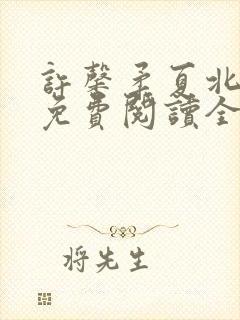 許馨矛夏北
免費閱讀全
将先生